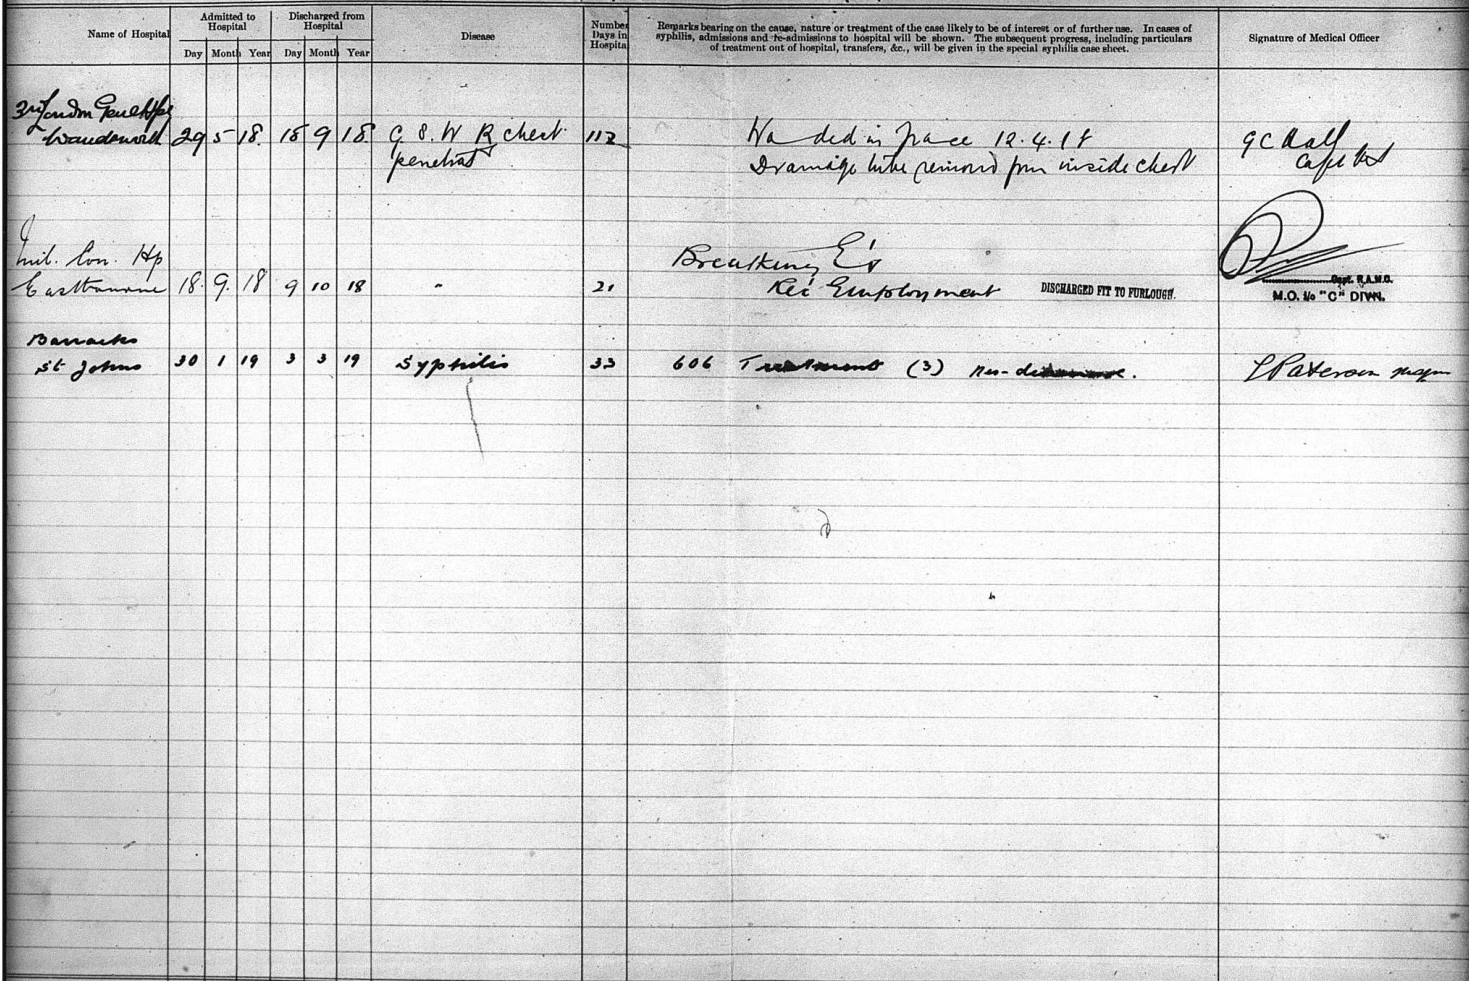 Name of Hospital
Admitted to Hospital
Discharged from Hospital
Disease
Number Days in Hospital
Remarks bearing on the cause, nature or treatment of the case likely to be of interest or of further use. In cases of
syphilis, admissions and re-admissions to hospital will be shown. The subsequent progress, including particulars
of treatment out of hospital, transfers, &c., will be given in the special syphilis case sheet.
Signature of Medical Officer
Day Month Year Day Month Year
3rd London Genl Hsp
Wandsworth 29 5 18. 18 9 18. G. S. W R chest 112 Wounded in France 12.4.18 G C Hall
penetrat Drainage tube removed from inside chest Capt
Mil. Con. Hp Breathing Ex's
Eastbourne 18. 9. 18 9 10 18 " 21 Rec Employment DISCHARGED FIT TO FURLOUGH. Capt. R.A.M.C.
M.O. i/c "C" DIVN.
Barracks
St Johns 30 1 19 3 3 19 Syphilis 33 606 Treatment (3) L Paterson Major